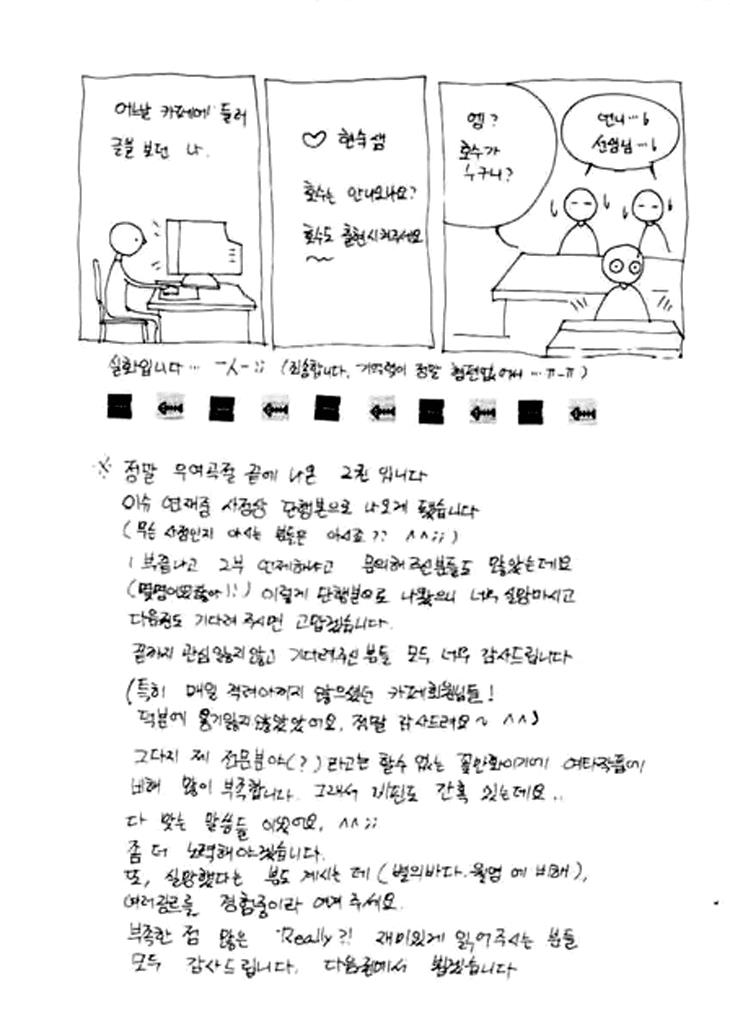 어느날 카페에 들러
글을 보던 나.
♡ 현숙샘
호수는 안나오나요?
호수도 출현시켜주세요
~~
엥?
호수가
누구니?
언니…
선생님…
실화입니다… ㅡ人ㅡ;; (죄송합니다. 기억력이 정말 형편없어서…ㅠ-ㅠ)
※ 정말 우여곡절 끝에 나온 2권 입니다
이슈 연재중 사정상 단행본으로 나오게 됐습니다
(무슨 사정인지 아시는 분들은 아시죠?? ^^;;)
1부 끝나고 2부 언제하냐고 문의해 주신분들도 많았는데요
(몇명이었잖아!!) 이렇게 단행본으로 나왔으니 너무 실망마시고
다음권도 기다려 주시면 고맙겠습니다.
끝까지 관심 잃지않고 기다려주신 분들 모두 너무 감사드립니다
(특히 매일 격려아끼지 않으셨던 카페회원님들!
덕분에 용기잃지않았었어요. 정말 감사드려요~ ^^)
그다지 제 전문분야(?)라고는 할수 없는 꽃만화이기에 여타작품에
비해 많이 부족합니다. 그래서 비판도 간혹 있는데요..
다 맞는 말씀들 이었어요. ^^;;
좀 더 노력해야겠습니다.
또, 실망했다는 분도 계시는 데 (별의바다.월영 에 비해),
여러장르를 경험중이라 여겨 주세요.
부족한 점 많은 "Really?! 재미있게 읽어주시는 분들
모두 감사드립니다. 다음권에서 뵙겠습니다